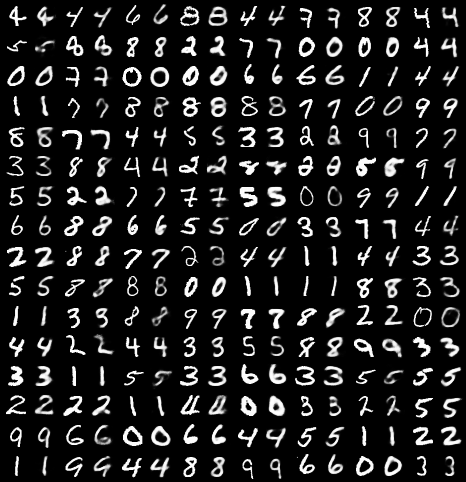 4 4 4 4 6 6 8 8 4 4 7 7 8 8 4 4
5 5 8 8 8 8 2 2 7 7 0 0 0 0 4 4
0 0 7 7 0 0 0 0 6 6 6 6 1 1 4 4
1 1 7 7 8 8 8 8 8 8 1 1 0 0 9 9
8 8 7 7 4 4 5 5 3 3 2 2 9 9 7 7
3 3 8 8 4 4 2 2 8 8 2 2 8 8 9 9
5 5 2 2 7 7 7 7 5 5 0 0 9 9 1 1
6 6 8 8 6 6 5 5 0 0 3 3 7 7 4 4
2 2 8 8 7 7 2 2 4 4 1 1 4 4 3 3
5 5 8 8 8 8 0 0 1 1 1 1 8 8 3 3
1 1 3 3 8 8 9 9 7 7 8 8 2 2 0 0
4 4 2 2 4 4 3 3 5 5 8 8 9 9 3 3
3 3 1 1 5 5 3 3 6 6 3 3 5 5 5 5
2 2 2 2 1 1 4 4 0 0 3 3 2 2 5 5
9 9 6 6 0 0 6 6 4 4 5 5 1 1 2 2
1 1 9 9 4 4 8 8 9 9 6 6 0 0 3 3